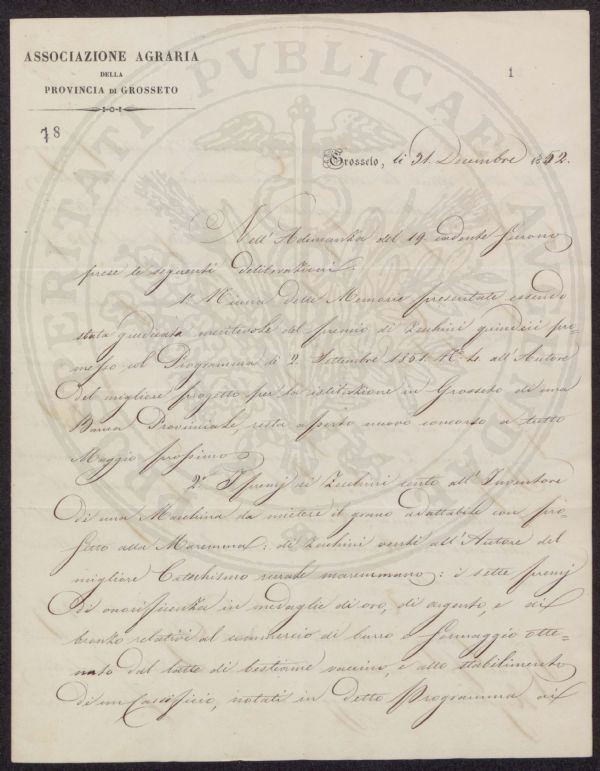 ASSOCIAZIONE AGRARIA
DELLA
PROVINCIA DI GROSSETO
1
78
Grosseto, li 31. Decembre 1852.
Nell' Adunanza del 19 cadente furono
prese le seguenti deliberazioni.
1ª Niuna delle Memorie presentate essendo
stata giudicata meritevole del premio di Zecchini quindici pro-
messo col Programma di 2. Settembre 1851. all' Autore
del migliore progetto per la istituzione in Grosseto di una
Banca Provinciale, resta aperto nuovo concorso a tutto
Maggio prossimo
2ª I premj di Zecchini cento all' Inventore
di una Macchina da mietere il grano adattabile con pro-
fitto alla Maremma: di Zecchini venti all' Autore del
migliore Catechismo rurale maremmano: i sette premj
di onorificenza in medaglie di oro, di argento, e di
bronzo relativi al commercio di burro e formaggio otte-
nuto dal latte di bestiame vaccino, e allo stabilimento
di un Cascificio, notati in detto Programma di
PVBLICAE